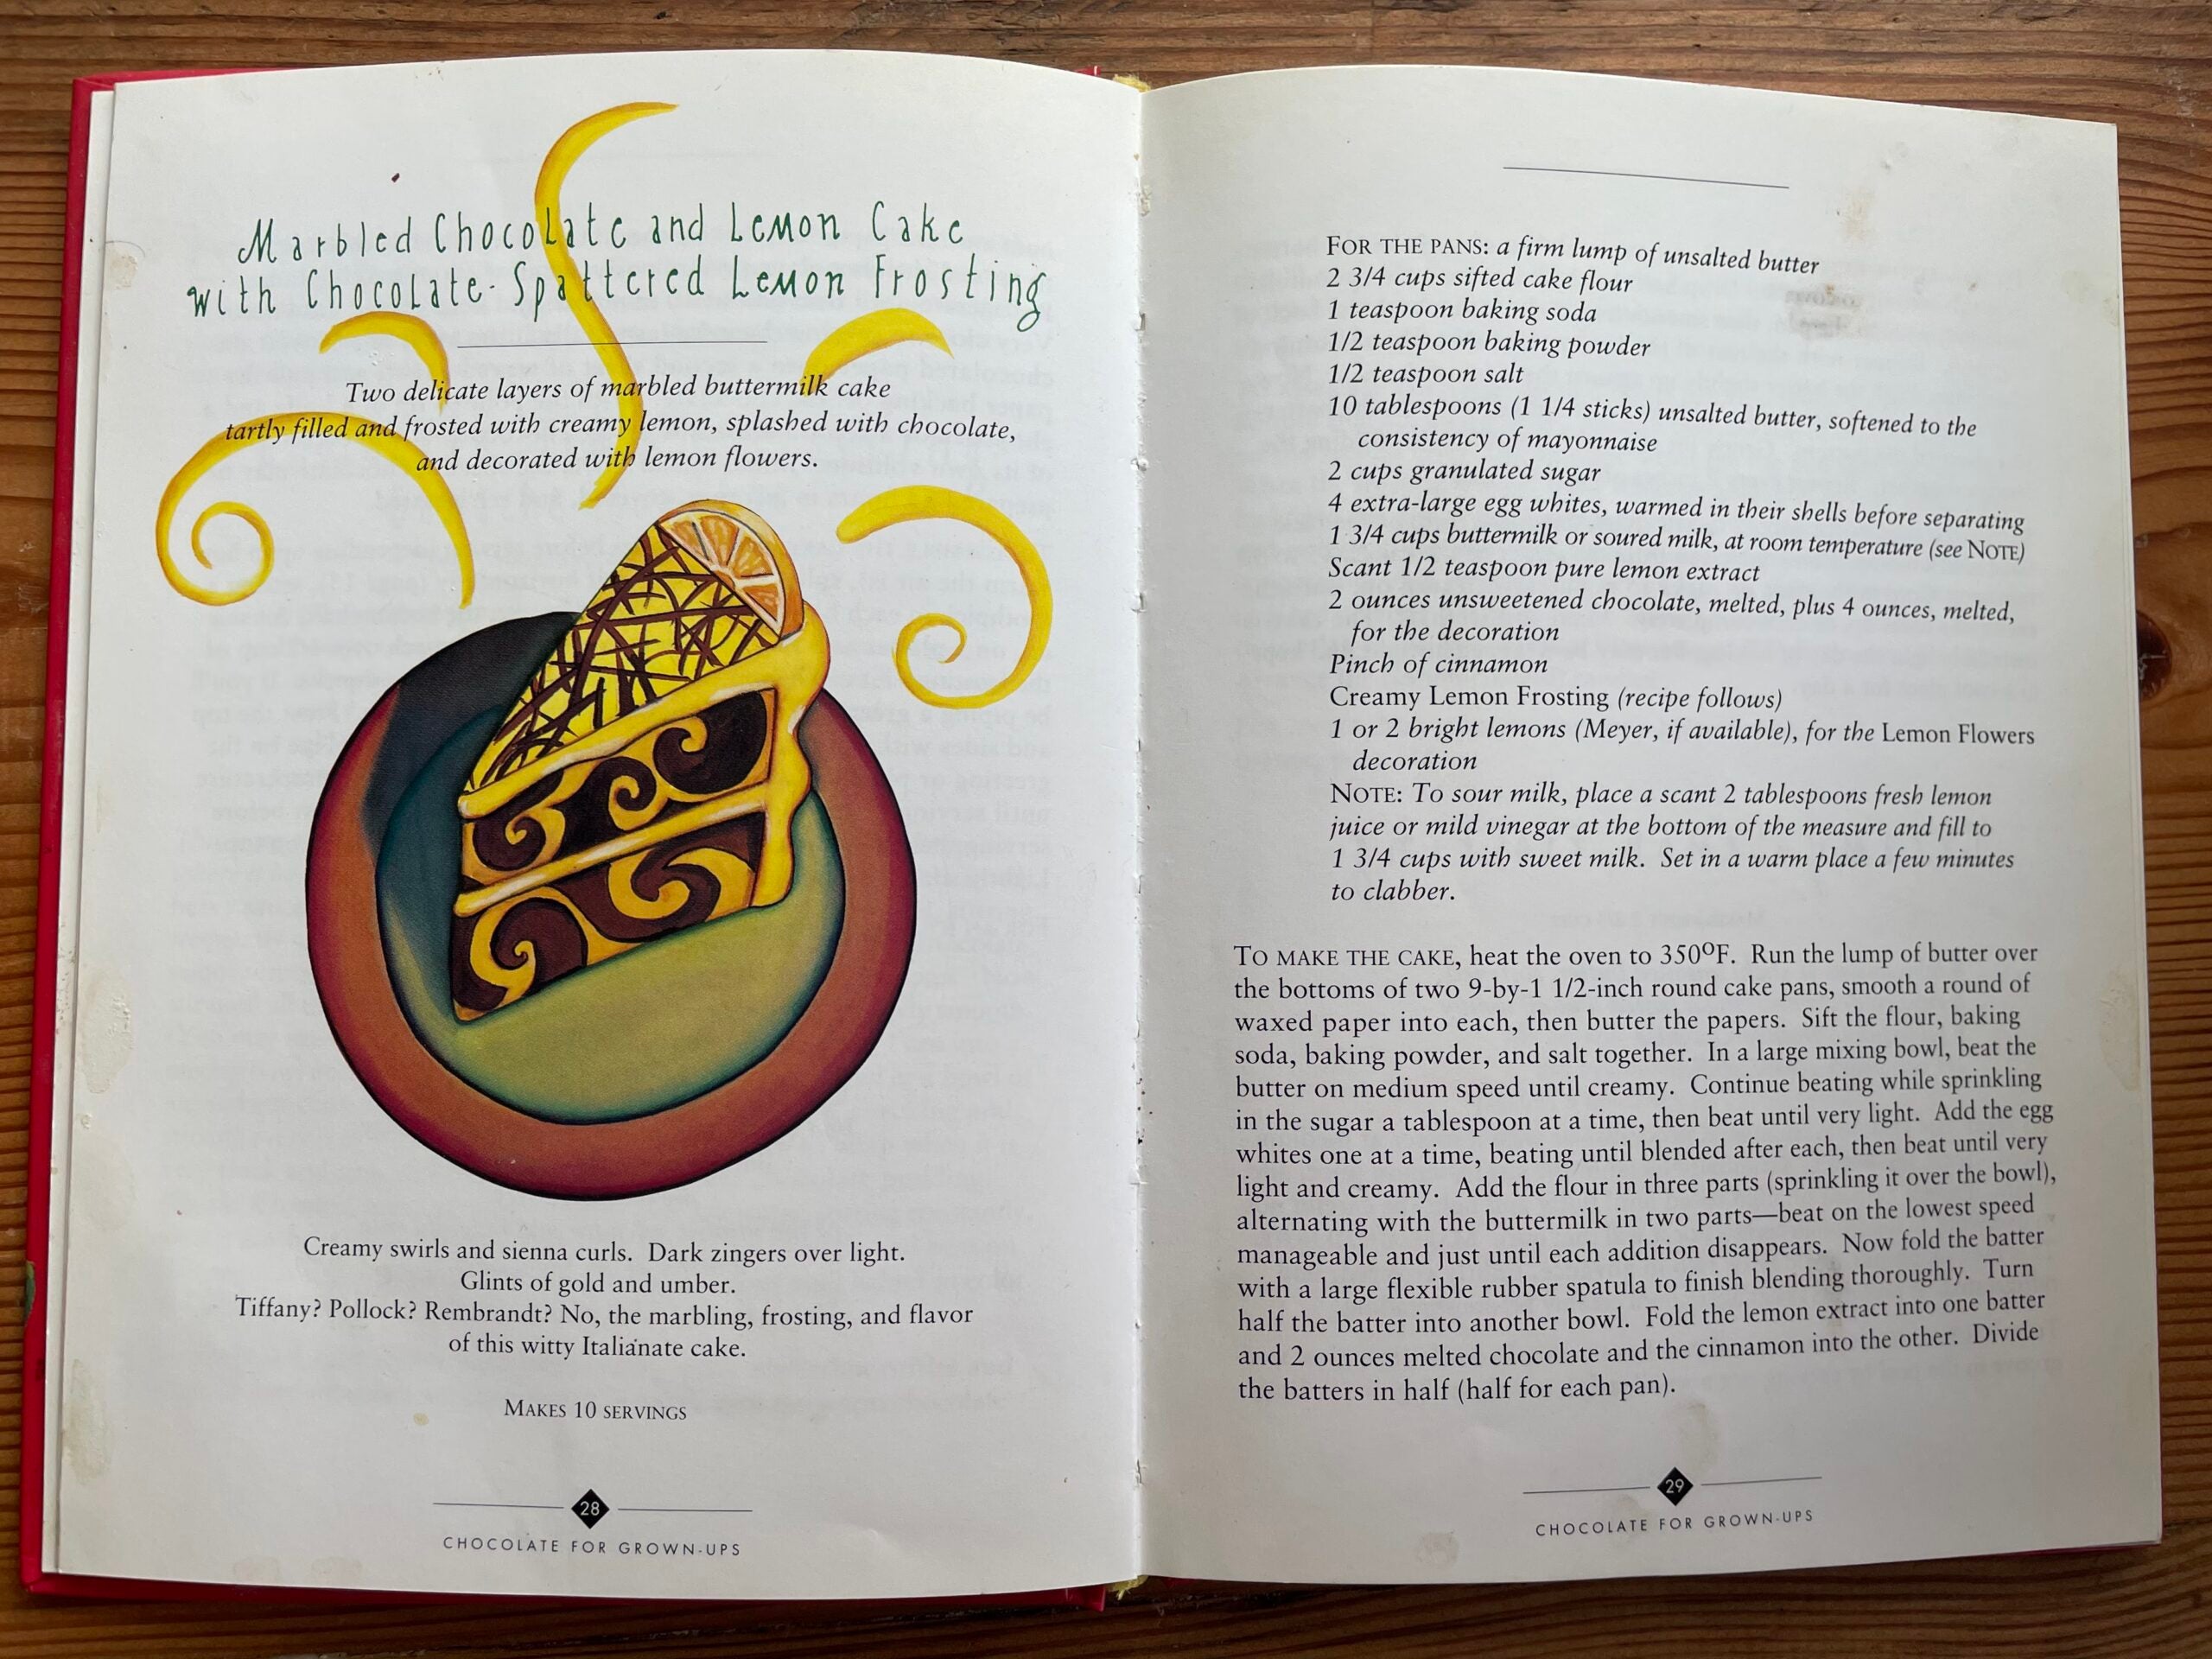 Marbled Chocolate and Lemon Cake
with Chocolate-Spattered Lemon Frosting
Two delicate layers of marbled buttermilk cake
tartly filled and frosted with creamy lemon, splashed with chocolate,
and decorated with lemon flowers.
Creamy swirls and sienna curls. Dark zingers over light.
Glints of gold and umber.
Tiffany? Pollock? Rembrandt? No, the marbling, frosting, and flavor
of this witty Italianate cake.
MAKES 10 SERVINGS
28
CHOCOLATE FOR GROWN-UPS
FOR THE PANS: a firm lump of unsalted butter
2 3/4 cups sifted cake flour
1 teaspoon baking soda
1/2 teaspoon baking powder
1/2 teaspoon salt
10 tablespoons (1 1/4 sticks) unsalted butter, softened to the
consistency of mayonnaise
2 cups granulated sugar
4 extra-large egg whites, warmed in their shells before separating
1 3/4 cups buttermilk or soured milk, at room temperature (see NOTE)
Scant 1/2 teaspoon pure lemon extract
2 ounces unsweetened chocolate, melted, plus 4 ounces, melted,
for the decoration
Pinch of cinnamon
Creamy Lemon Frosting (recipe follows)
1 or 2 bright lemons (Meyer, if available), for the Lemon Flowers
decoration
NOTE: To sour milk, place a scant 2 tablespoons fresh lemon
juice or mild vinegar at the bottom of the measure and fill to
1 3/4 cups with sweet milk. Set in a warm place a few minutes
to clabber.
TO MAKE THE CAKE, heat the oven to 350ºF. Run the lump of butter over
the bottoms of two 9-by-1 1/2-inch round cake pans, smooth a round of
waxed paper into each, then butter the papers. Sift the flour, baking
soda, baking powder, and salt together. In a large mixing bowl, beat the
butter on medium speed until creamy. Continue beating while sprinkling
in the sugar a tablespoon at a time, then beat until very light. Add the egg
whites one at a time, beating until blended after each, then beat until very
light and creamy. Add the flour in three parts (sprinkling it over the bowl),
alternating with the buttermilk in two parts—beat on the lowest speed
manageable and just until each addition disappears. Now fold the batter
with a large flexible rubber spatula to finish blending thoroughly. Turn
half the batter into another bowl. Fold the lemon extract into one batter
and 2 ounces melted chocolate and the cinnamon into the other. Divide
the batters in half (half for each pan).
29
CHOCOLATE FOR GROWN-UPS